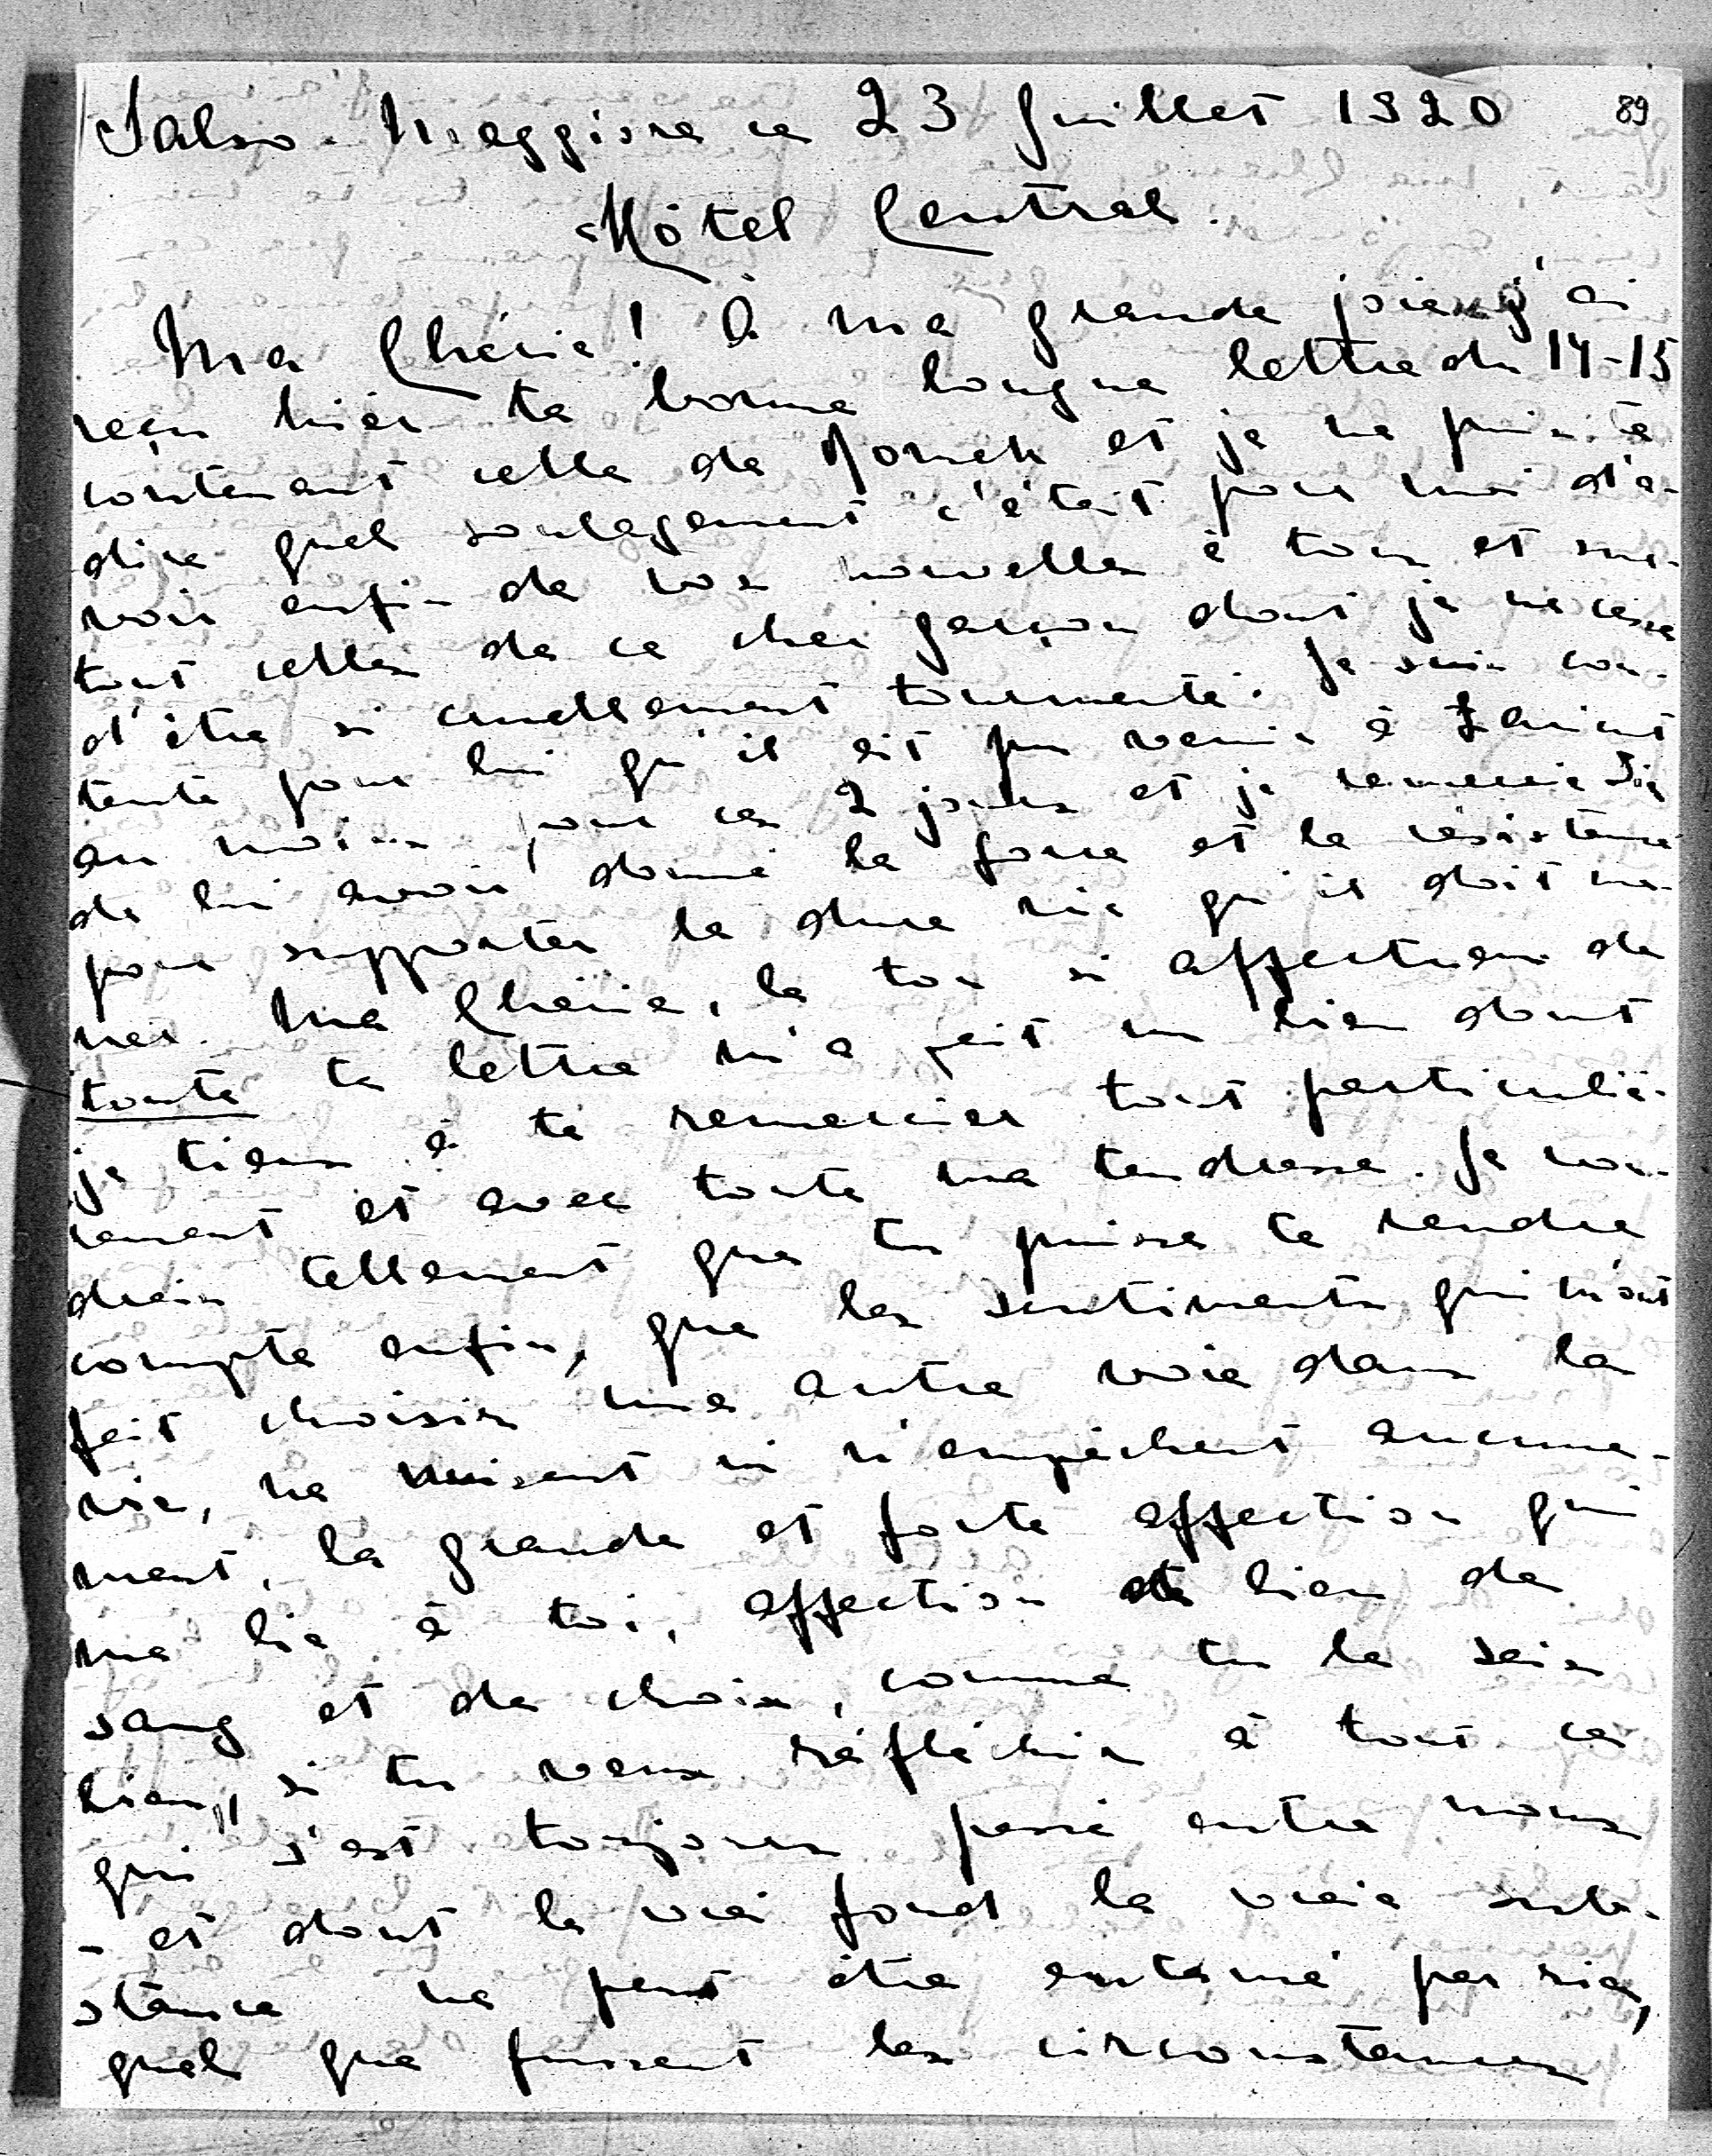 Salso-Maggiore ce 23 Juillet 1920 89
Hôtel Central.
Ma Chérie! À ma grande joie j'ai
reçu hier ta bonne longue lettre du 14-15
contenant celle de et je ne puis te
dire quel soulagement c'était pour moi d'a-
voir enfin de vos nouvelles à tous et sur-
tout celles de ce cher garçon dont je ne cesse
d'être si cruellement tourmenté. Je suis con-
tente pour lui qu'il ait pu venir à
au moins pour ces 2 jours et je remercie Dieu
de lui avoir donné la force et la résistance
pour supporter la dure vie qu'il doit me-
ner. Ma Chérie, le ton si affectueux de
toute ta lettre m'a fait un bien dont
je tiens à te remercier tout particuliè-
rement et avec toute ma tendresse. Je vou-
drais tellement que tu puisse te rendre
compte enfin, que les sentiments qui m'ont
fait choisir une autre voie dans la
vie, ne nuisent ni n'empêchent aucune-
ment, la grande et forte affection qui
me lie à toi, affection de lien de
sang et de choix, comme tu le sais
bien, si tu veux réfléchir à tout ce
qui s'est toujours passé entre nous
- et dont le vrai fond la vraie sub-
stance ne peut être entamé par rien,
quels que fussent les circonstances